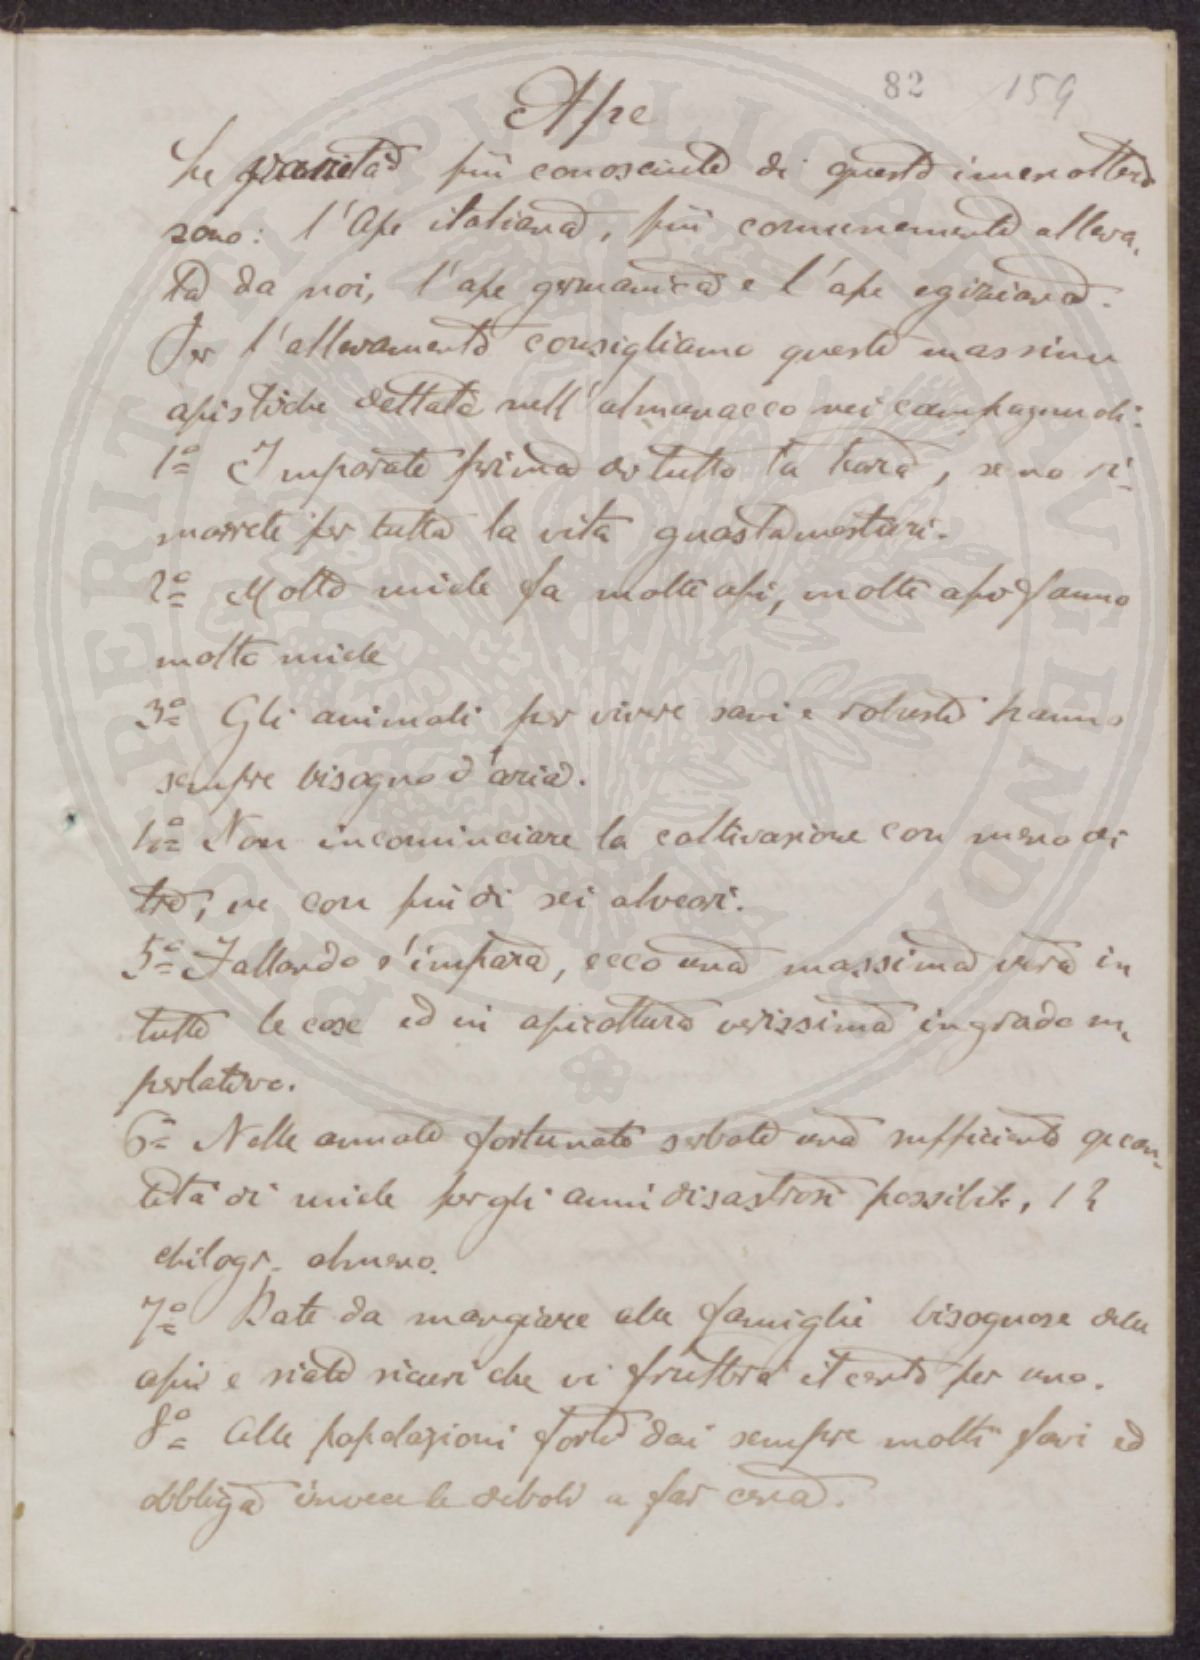 82 159
Ape
Le varietà più conosciute di questo imenottero
sono: l'Ape italiana, più comunemente alleva-
ta da noi, l'ape germanica e l'ape egiziana.
Per l'allevamento consigliamo queste massime
apistiche dettate nell'almanacco nei campagnuoli:
1º Imparate prima di tutto la teoria, se no ri-
marrete per tutta la vita guastamestieri.
2º Molto miele fa molte api, molte api fanno
molto miele
3º Gli animali per vivere sani e robusti hanno
sempre bisogno d'aria.
4º Non incominciare la coltivazione con meno di
tre, ne con più di sei alveari.
5º Fallando s'impara, ecco una massima vera in
tutte le cose ed in apicoltura verissima in grado su-
perlativo.
6º Nelle annate fortunate serbate una sufficiente quan-
tità di miele per gli anni disastrosi possibili, 12
chilogr. almeno.
7º Date da mangiare alle famiglie bisognose delle
api e siate sicuri che vi frutterà il cento per uno.
8º Alle popolazioni forti dai sempre molti favi ed
obbliga invece le deboli a far cera.
PERITI PVBLICAE AVGENDAE